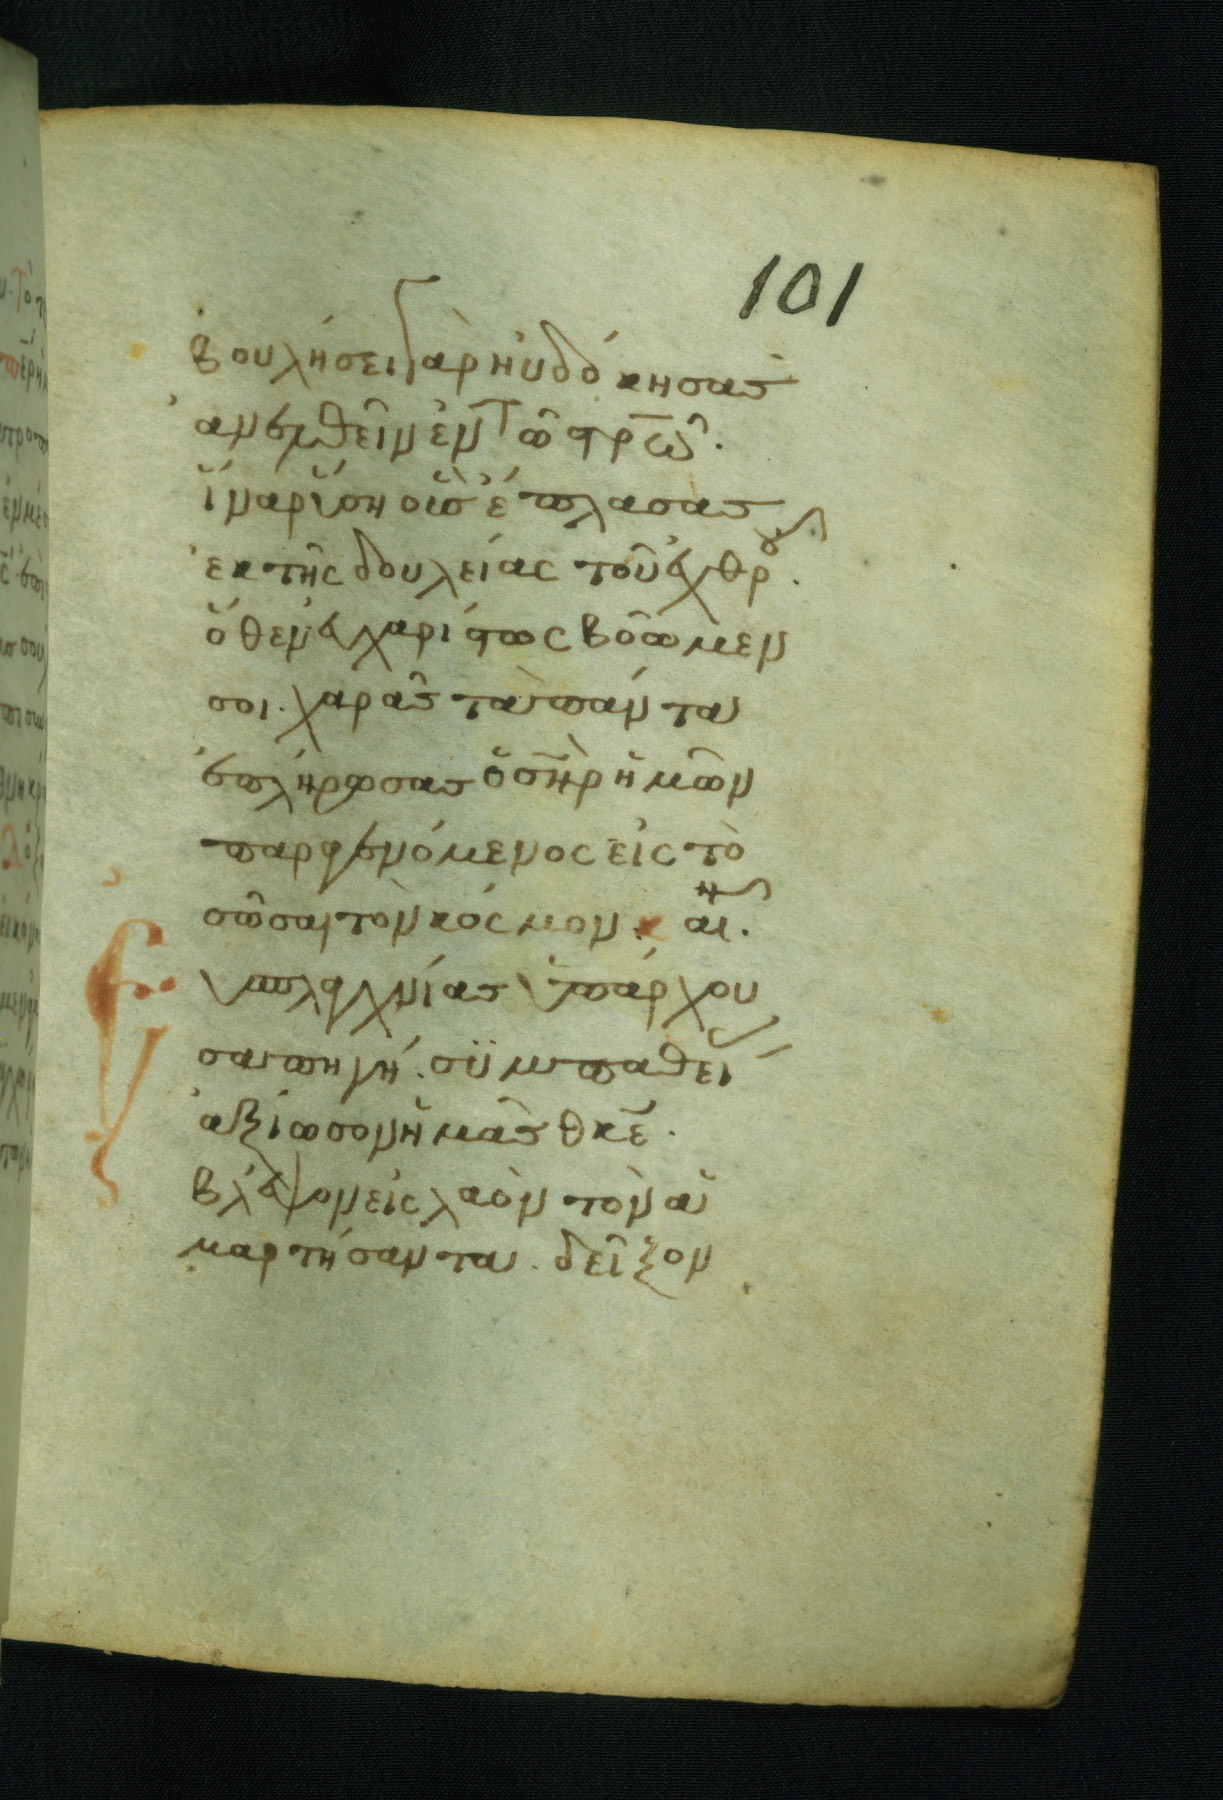 101
βουλήσει γὰρ ηὐδόκησας
ἀνελθεῖν ἐν τῶ στρ̅ω̂.
ἵνα ῥύση οὓς ἔπλασας
ἐκ τῆς δουλείας τοῦ ἐχθροῦ.
ὅθεν εὐχαρίστως βοῶμεν
σοι. χαρᾶς τὰ πάντα
ἐπλήρωσας ὁ σ̅η̅ρ ἡμῶν
παραγενόμενος εἰς τὸ
σῶσαι τὸν κόσμον. κ αι.
Εὐσπλαγχνίας ὑπάρχου
σα πηγή. συμπαθεί
ἀξίωσον ἡμᾶς θ̅κ̅ε.
βλέψον εἰς λαὸν τὸν ἁ
μαρτήσαντα. δεῖξον